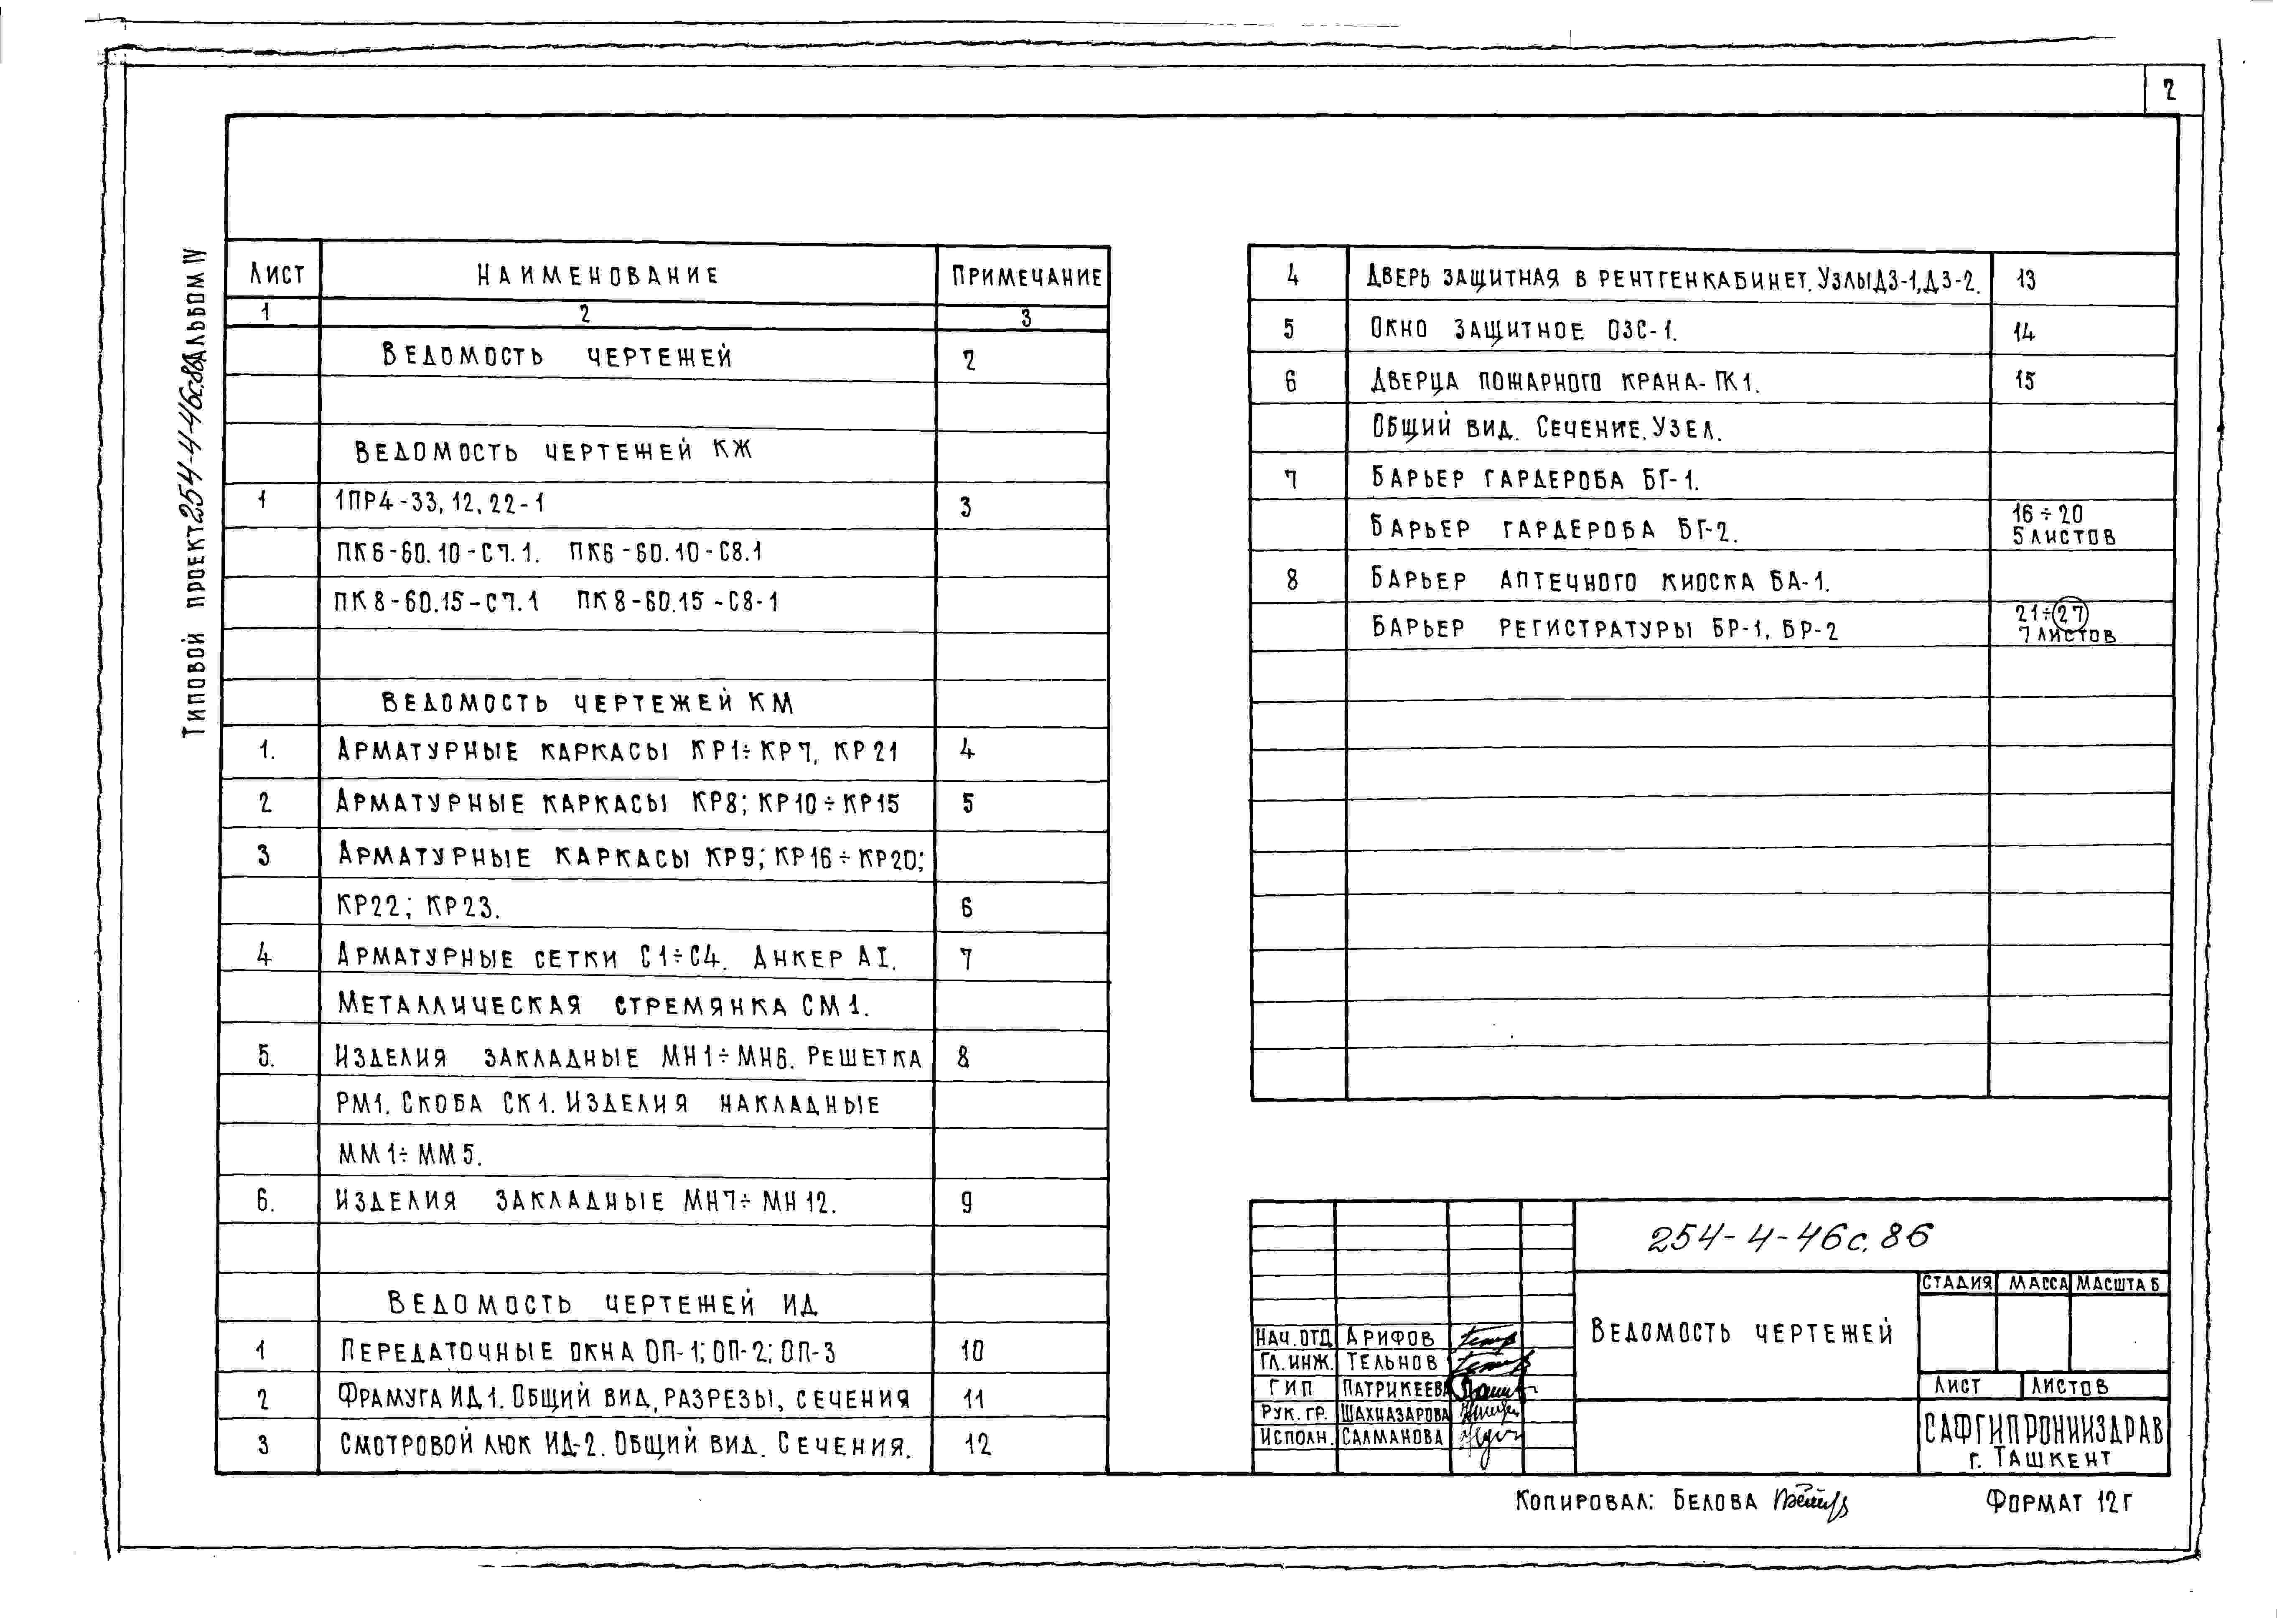 2
Типовой проект 254-4-46с.86 Альбом IV
Лист Наименование Примечание
1 2 3
Ведомость чертежей 2
Ведомость чертежей КЖ
1 1ПР4-33,12,22-1 3
ПК6-60.10-С7.1. ПК6-60.10-С8.1
ПК8-60.15-С7.1 ПК8-60.15-С8-1
Ведомость чертежей КМ
1. Арматурные каркасы КР1÷КР7, КР21 4
2 Арматурные каркасы КР8; КР10÷КР15 5
3 Арматурные каркасы КР9; КР16÷КР20;
КР22; КР23. 6
4 Арматурные сетки С1÷С4. Анкер АI. 7
Металлическая стремянка СМ1.
5. Изделия закладные МН1÷МН6. Решетка 8
РМ1. Скоба СК1. Изделия накладные
ММ1÷ММ5.
6. Изделия закладные МН7÷МН12. 9
Ведомость чертежей ИД
1 Передаточные окна ОП-1; ОП-2; ОП-3 10
2 Фрамуга ИД1. Общий вид, разрезы, сечения 11
3 Смотровой люк ИД-2. Общий вид. Сечения. 12
4 Дверь защитная в рентгенкабинет. Узлы ДЗ-1, ДЗ-2. 13
5 Окно защитное ОЗС-1. 14
6 Дверца пожарного крана-ПК1. 15
Общий вид. Сечение. Узел.
7 Барьер гардероба БГ-1.
Барьер гардероба БГ-2. 16÷20
5 листов
8 Барьер аптечного киоска БА-1.
Барьер регистратуры БР-1, БР-2 21÷27
7 листов
254-4-46с.86
Стадия Масса Масштаб
Ведомость чертежей
Нач.отд Арифов
Гл.инж. Тельнов
ГИП Патрикеева
Рук.гр. Шахназарова
Исполн. Салманова
Лист Листов
САФГИПРОНИИЗДРАВ
г. Ташкент
Копировал: Белова
Формат 12г